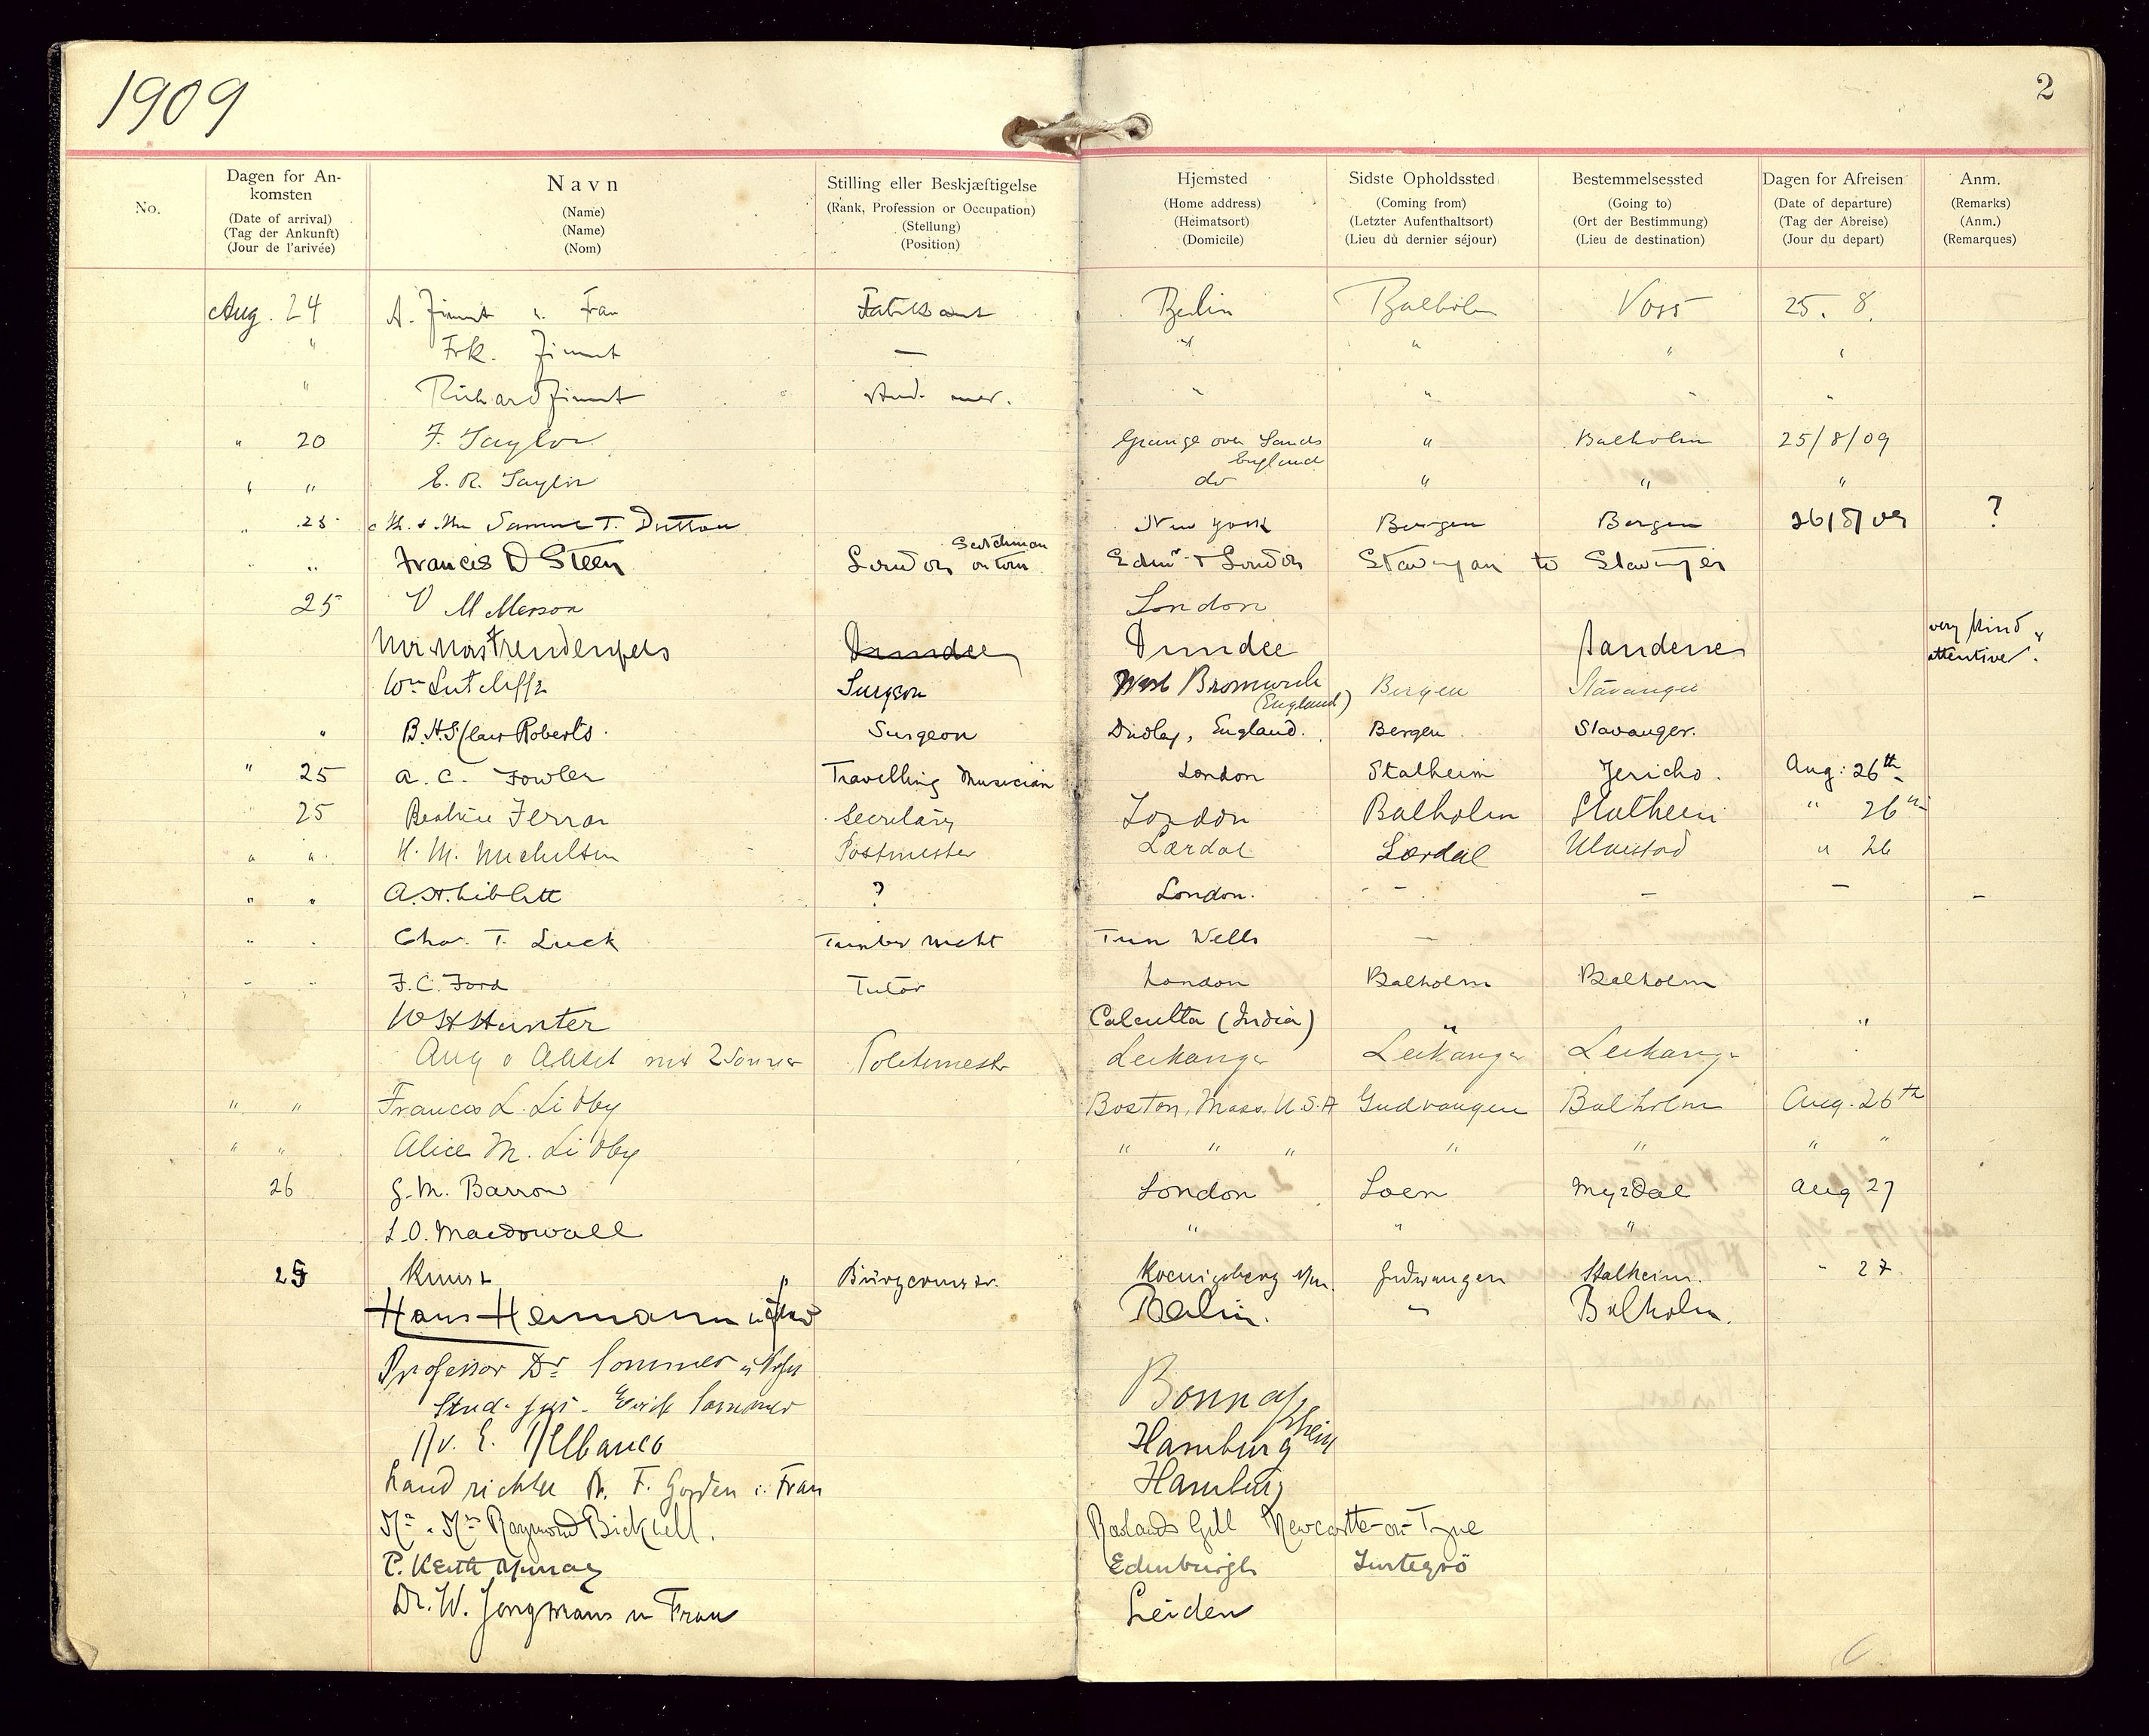 1909
2
No.
Dagen for An-
komsten
(Date of arrival)
(Tag der Ankunft)
(Jour de l'arivée)
Navn
(Name)
(Name)
(Nom)
Stilling eller Beskjæftigelse
(Rank, Profession or Occupation)
(Stellung)
(Position)
Hjemsted
(Home address)
(Heimatsort)
(Domicile)
Sidste Opholdssted
(Coming from)
(Letzter Aufenthaltsort)
(Lieu dù dernier séjour)
Bestemmelsessted
(Going to)
(Ort der Bestimmung)
(Lieu de destination)
Dagen for Afreisen
(Date of departure)
(Tag der Abreise)
(Jour du depart)
Anm.
(Remarks)
(Anm.)
(Remarques)
Aug. 24 A. Zimmt u. Frau Fabrikant Berlin Balholm Voss 25. 8.
" Frk. Zimmt — " " " "
" Richard Zimmt " " " "
" 20 F. Taylor Grange over Sands England " Balholm 25/8/09
" " E. R. Taylor do " " "
" 25 Mr. & Mrs Samuel T. Dutton New York Bergen Bergen 26/8/09 ?
" " Francis D Steen London Scotchman on tour Edinr & London Stavanger to Stavanger
25 V M Merson London
Mr Mrs Dundee Dundee very kind & attentive.
Wm Sutcliffe Surgeon West Bromwich (England) Bergen Stavanger
" B. H. St Clair Roberts. Surgeon Dudley, England. Bergen Stavanger.
" 25 A. C. Fowler Travelling Musician London Stalheim Jericho. Aug: 26th
25 Beatrice Ferrar Secretary London Balholm Stalheim " 26th
" " H. M. Michelsen Postmester Lærdal Lærdal " 26
" " A. H. Liblett ? London. - - — — -
" " Chas. T. Luck Timber Mcht Tun Wells —
" " F. C. Ford Tutor London Balholm Balholm
W H Hunter Calcutta (India) " "
Aug 2 Sønner Leikanger Leikanger Leikanger
" " Frances L. Libby Boston, Mass. U.S.A Gudvangen Balholm Aug. 26th
" " Alice M. Libby " " " " " " "
26 G. M. Barrow London Loen Myrdal Aug 27
L. O. Macdowall " " "
25 Kunst Bürgermstr. Koenigsberg N/m. Gudvangen Stalheim. " 27.
Hans Heimann u Frau Berlin. " Balholm.
Professor Dr Sommer
Stud. jur. Erich Sommer Bonn a/ Rhein
Dr. E. Delbanco Hamburg
Landrichter Dr. F. Gorden u. Frau Hamburg
Mr & Mrs Raymond Bicknell. Rowlands Gill Newcastle-on-Tyne
P. Keith Murray Edinburgh Turtegrö
Dr. W. Jongmans u Frau Leiden